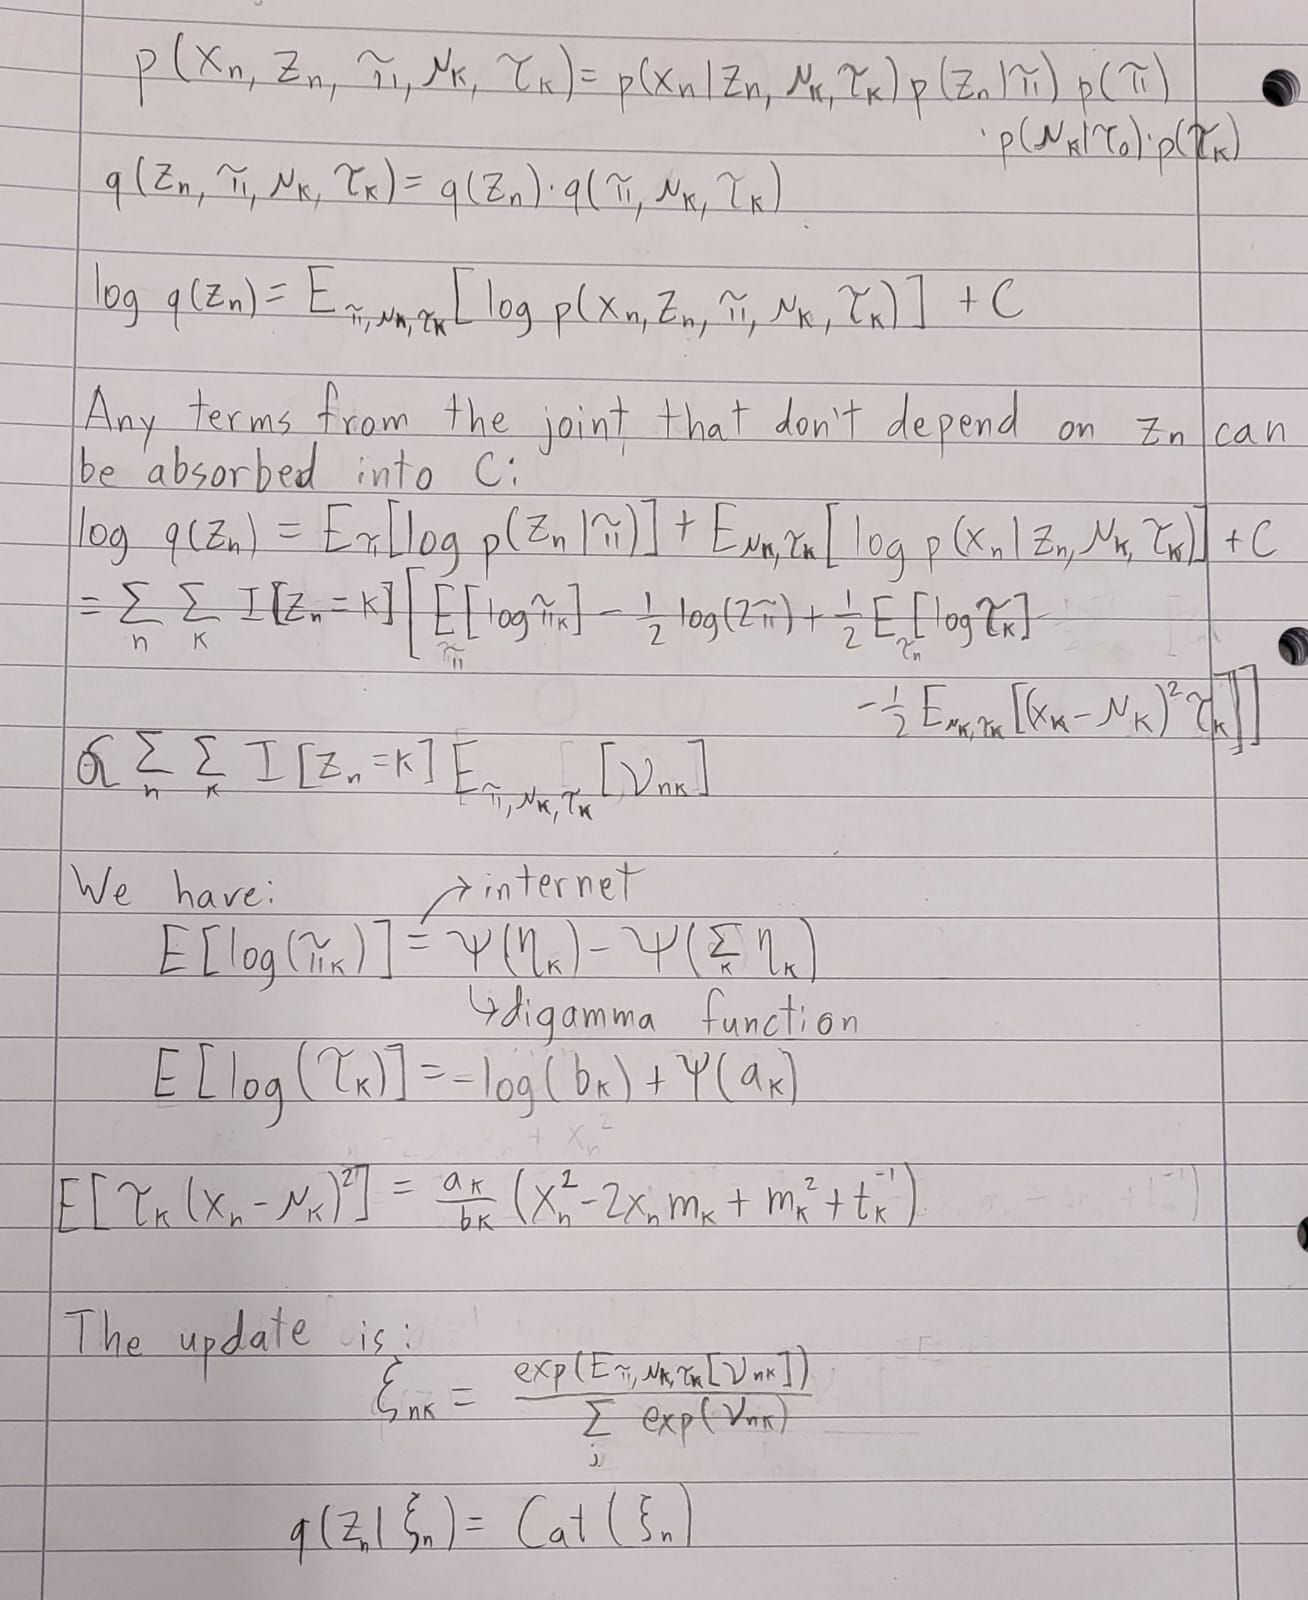 p(xₙ, zₙ, π̃, μₖ, τₖ) = p(xₙ|zₙ, μₖ, τₖ) p(zₙ|π̃) p(π̃)
· p(μₖ|τ₀) · p(τₖ)
q(zₙ, π̃, μₖ, τₖ) = q(zₙ) · q(π̃, μₖ, τₖ)
log q(zₙ) = E_{π̃, μₖ, τₖ} [log p(xₙ, zₙ, π̃, μₖ, τₖ)] + C
Any terms from the joint that don't depend on zₙ can
be absorbed into C:
log q(zₙ) = E_π̃[log p(zₙ|π̃)] + E_{μₖ, τₖ}[log p(xₙ|zₙ, μₖ, τₖ)] + C
= Σ_n Σ_k I[zₙ = k] [E_π̃[log π̃ₖ] - ½ log(2π̃) + ½ E_{τₙ}[log τₖ]
- ½ E_{μₖ, τₖ}[(xₖ - μₖ)² τₖ]]
Σ_n Σ_k I[zₙ = k] E_{π̃, μₖ, τₖ}[νₙₖ]
We have: → internet
E[log(π̃ₖ)] = Ψ(ηₖ) - Ψ(Σ_k ηₖ)
↳ digamma function
E[log(τₖ)] = -log(bₖ) + Ψ(aₖ)
E[τₖ(xₙ - μₖ)²] = aₖ/bₖ (xₙ² - 2xₙmₖ + mₖ² + tₖ⁻¹)
The update is:
ξₙₖ = exp(E_{π̃, μₖ, τₖ}[νₙₖ]) / Σ_j exp(νₙₖ)
q(zₙ|ξₙ) = Cat(ξₙ)